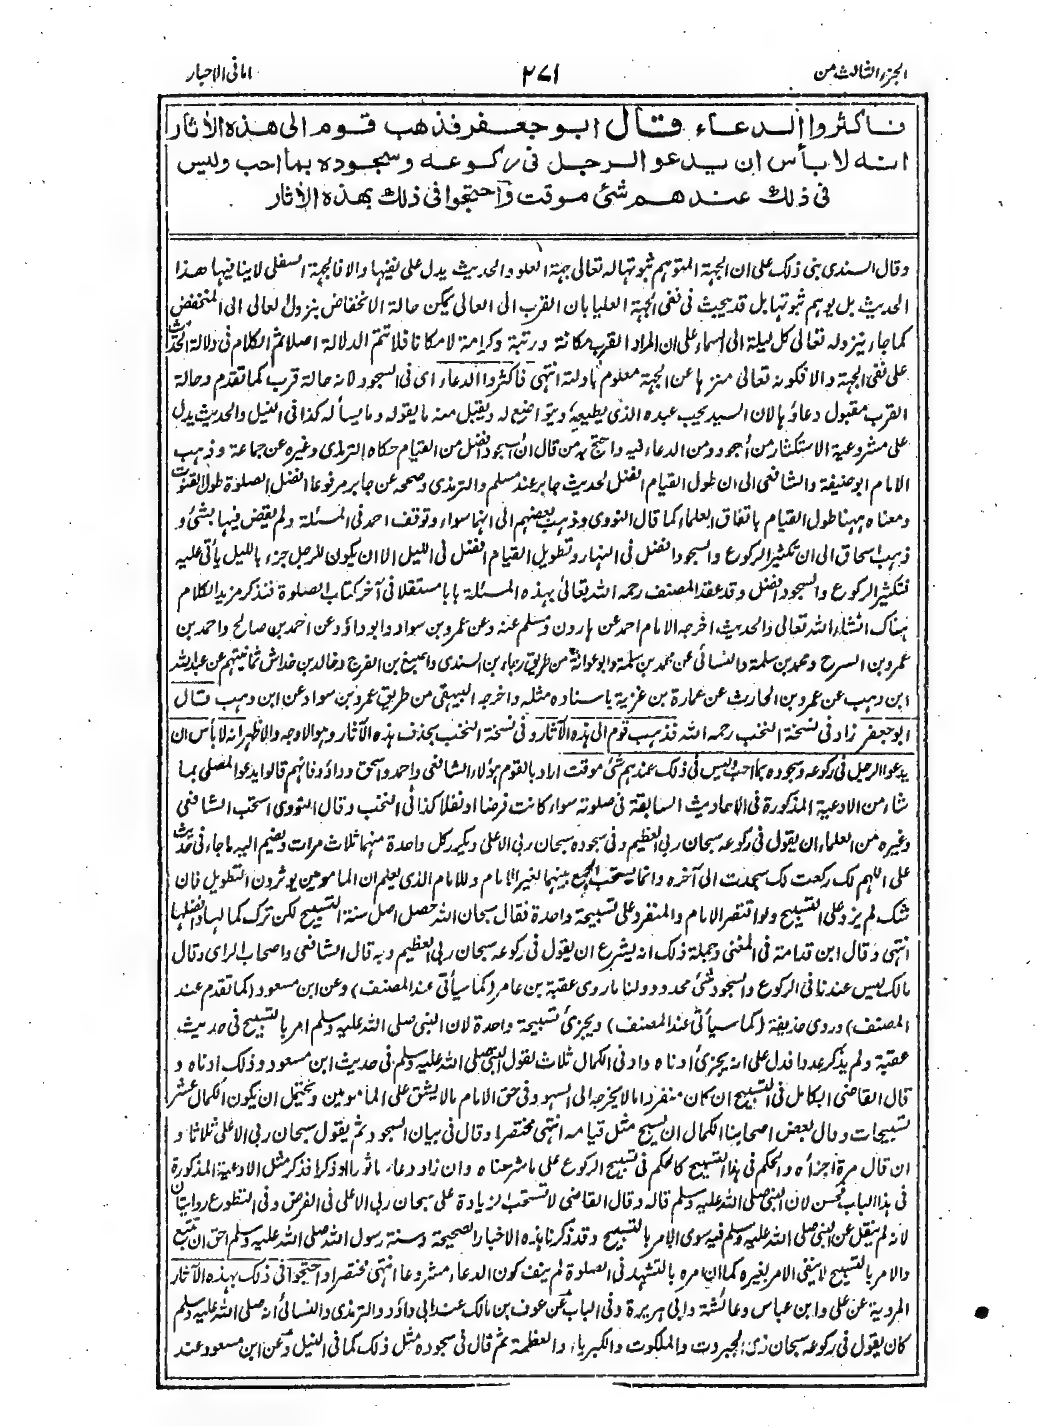 الجزء الثالث من
٢٧١
امانی الاحبار
فاکثروا الدعاء قال ابو جعفر فذهب قوم الی هذه الآثار
انه لا بأس ان یدعو الرجل فی رکوعه وسجوده بما احب ولیس
فی ذلک عندهم شئ موقت واحتجوا فی ذلک بهذه الآثار
وقال السندی بنی ذلک علی ان الجهة المتوهم ثبوتها له تعالی جهة العلو والحدیث یدل علی نفیها والا فالجهة السفلی لا ینافیها هذا
الحدیث بل یوهم ثبوتها بل قد یبحث فی نفی الجهة العلیا بان القرب الی العالی یمکن حالة الانخفاض بنزول العالی الی المنخفض
کما جاء نزوله تعالی کل لیلة الی السماء علی ان المراد القرب مکانة ورتبة وکرامة لا مکانا فلا تتم الدلالة اصلا ثم الکلام فی دلالة الحدیث
علی نفی الجهة والا فکونه تعالی منزها عن الجهة معلوم بادلته انتهی فاکثروا الدعاء ای فی السجود لانه حالة قرب کما تقدم وحالة
القرب مقبول دعاؤها لان السید یحب عبده الذی یطیعه ویتواضع له ویقبل منه ما یقوله وما یسأله کذا فی النیل والحدیث یدل
علی مشروعیة الاستکثار من السجود ومن الدعاء فیه واحتج به من قال ان السجود افضل من القیام حکاه الترمذی وغیره عن جماعة وذهب
الامام ابو حنیفة والشافعی الی ان طول القیام افضل لحدیث جابر عند مسلم والترمذی وصححه عن جابر مرفوعا افضل الصلوة طول القنوت
ومعناه ههنا طول القیام باتفاق العلماء کما قال النووی وذهب بعضهم الی انهما سواء وتوقف احمد فی المسئلة ولم یقض فیها بشئ و
ذهب اسحاق الی ان تکثیر الرکوع والسجود افضل فی النهار وتطویل القیام افضل فی اللیل الا ان یکون للرجل جزء باللیل یأتی علیه
فتکثیر الرکوع والسجود افضل وقد عقد المصنف رحمه الله تعالی بهذه المسئلة بابا مستقلا فی آخر کتاب الصلوة فنذکر مزید الکلام
هناک انشاء الله تعالی والحدیث اخرجه الامام احمد عن هارون ومسلم عنه وعن عمرو بن سواد وابو داؤد عن احمد بن صالح واحمد بن
عمرو بن السرح ومحمد بن سلمة والنسائی عن محمد بن سلمة وابو عوانة من طریق رجاء بن السندی واصبغ بن الفرج وخالد بن خداش ثمانیتهم عن عبد الله
ابن وهب عن عمرو بن الحارث عن عمارة بن غزیة باسناده مثله واخرجه البیهقی من طریق عمرو بن سواد عن ابن وهب قال
ابو جعفر زاد فی نسخة النخب رحمه الله فذهب قوم الی هذه الآثار وفی نسخة النخب بحذف هذه الآثار وهو الاوجه والاظهر انه لا بأس ان
یدعو الرجل فی رکوعه وسجوده بما احب ولیس فی ذلک عندهم شئ موقت اراد بالقوم هؤلاء الشافعی واحمد واسحق وداؤد فانهم قالوا یدعو المصلی بما
شاء من الادعیة المذکورة فی الاحادیث السابقة فی صلوته سواء کانت فرضا او نفلا کذا فی النخب وقال النووی استحب الشافعی
وغیره من العلماء ان یقول فی رکوعه سبحان ربی العظیم وفی سجوده سبحان ربی الاعلی ویکرر کل واحدة منهما ثلاث مرات ویضم الیه ما جاء فی حدیث
علی اللهم لک رکعت لک سجدت الی آخره وانما یستحب الجمع بینهما لغیر الامام وللامام الذی یعلم ان المأمومین یؤثرون التطویل فان
شک لم یزد علی التسبیح ولو اقتصر الامام والمنفرد علی تسبیحة واحدة فقال سبحان الله حصل اصل سنة التسبیح لکن ترک کمالها وافضلها
انتهی وقال ابن قدامة فی المغنی وجملة ذلک انه یشرع ان یقول فی رکوعه سبحان ربی العظیم وبه قال الشافعی واصحاب الرای وقال
مالک لیس عندنا فی الرکوع والسجود شئ محدود ولنا ما روی عقبة بن عامر (کما سیأتی عند المصنف) وعن ابن مسعود (کما تقدم عند
المصنف) وروی حذیفة (کما سیأتی عند المصنف) ویجزئ تسبیحة واحدة لان النبی صلی الله علیه وسلم امر بالتسبیح فی حدیث
عقبة ولم یذکر عددا فدل علی انه یجزئ ادناه وادنی الکمال ثلاث لقول النبی صلی الله علیه وسلم فی حدیث ابن مسعود وذلک ادناه و
قال القاضی الکامل فی التسبیح ان کان منفردا ما لا یخرجه الی السهو وفی حق الامام ما لا یشق علی المأمومین ویحتمل ان یکون الکمال عشر
تسبیحات وقال بعض اصحابنا الکمال ان یسبح مثل قیامه انتهی مختصرا وقال فی بیان السجود ثم یقول سبحان ربی الاعلی ثلاثا و
ان قال مرة اجزأه والحکم فی هذا التسبیح کالحکم فی تسبیح الرکوع علی ما شرحناه وان زاد دعاء ماثورا او ذکرا فذکر مثل الادعیة المذکورة
فی هذا الباب فحسن لان النبی صلی الله علیه وسلم قاله وقال القاضی لا تستحب الزیادة علی سبحان ربی الاعلی فی الفرض وفی التطوع روایتان
لانه لم ینقل عن النبی صلی الله علیه وسلم فیه سوی الامر بالتسبیح وقد ذکرنا هذه الاخبار الصحیحة وسنة رسول الله صلی الله علیه وسلم احق ان تتبع
والامر بالتسبیح لا ینفی الامر بغیره کما ان امره بالتشهد فی الصلوة لم ینف کون الدعاء مشروعا انتهی مختصرا واحتجوا فی ذلک بهذه الآثار
المرویة عن علی وابن عباس وعائشة وابی هریرة وفی الباب عن عوف بن مالک عند ابی داؤد والترمذی والنسائی انه صلی الله علیه وسلم
کان یقول فی رکوعه سبحان ذی الجبروت والملکوت والکبریاء والعظمة ثم قال فی سجوده مثل ذلک کما فی النیل وعن ابن مسعود عند